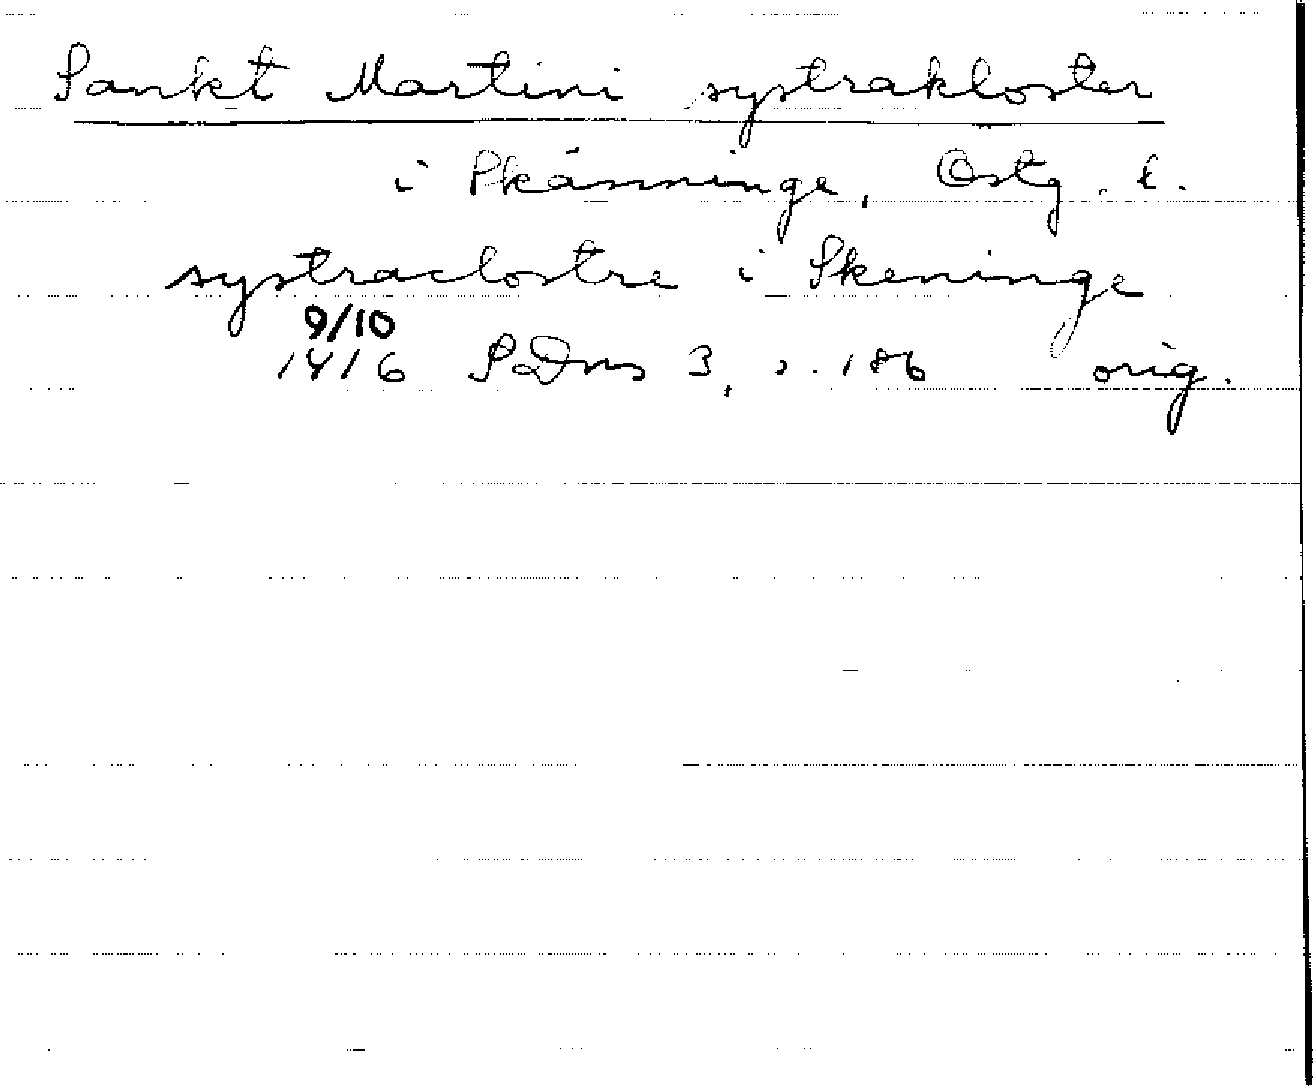 Sankt Martini systrakloster
i Skänninge, Östg. l.
systraclostre i Skeninge
9/10
1416 SDns 3, s. 186 orig.